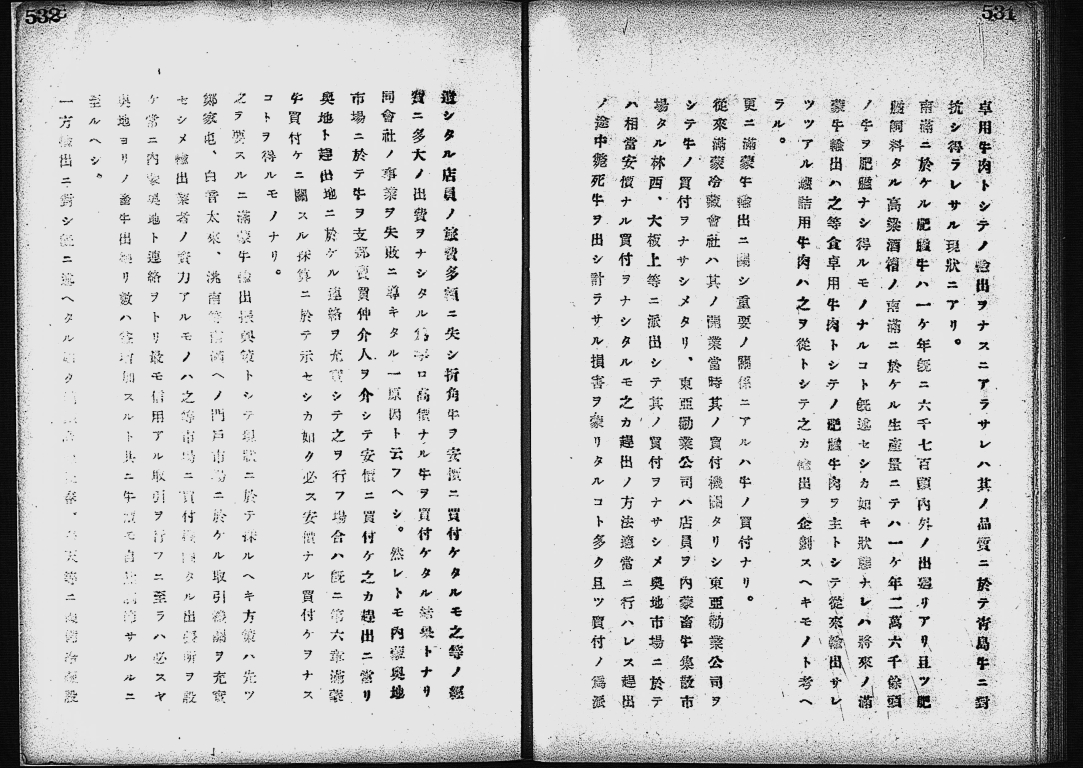 531
卓用牛肉トシテノ輸出ヲナスニアラサレハ其ノ品質ニ於テ青島牛ニ對
抗シ得ラレサル現狀ニアリ。
南滿ニ於ケル肥育牛ハ一ケ年既ニ六千七百頭內外ノ出廻リアリ且ツ肥
育飼料タル高粱酒糟ノ南滿ニ於ケル生產量ニテハ一ケ年二萬六千餘頭
ノ牛ヲ肥育ナシ得ルモノナルコト既述セシカ如キ狀態ナレハ將來ノ滿
蒙牛輸出ハ之等食卓用牛肉トシテノ肥育牛肉ヲ主トシテ從來輸出サレ
ツツアル罐詰用牛肉ハ之ヲ從トシテ之カ輸出ヲ企劃スヘキモノト考ヘ
ラル。
更ニ滿蒙牛輸出ニ關シ重要ノ關係ニアルハ牛ノ買付ナリ。
從來滿蒙冷藏會社ハ其ノ開業當時其ノ買付機關タリシ東亞勸業公司ヲ
シテ牛ノ買付ヲナサシメタリ、東亞勸業公司ハ店員ヲ內蒙畜牛集散市
場タル林西、大板上等ニ派出シテ其ノ買付ヲナサシメ奧地市場ニ於テ
ハ相當安價ナル買付ヲナシタルモ之カ趕出ノ方法適當ニ行ハレス趕出
ノ途中斃死牛ヲ出シ計ラサル損害ヲ蒙リタルコト多ク且ツ買付ノ爲派
532
遣シタル店員ノ旅費多額ニ失シ折角牛ヲ安價ニ買付ケタルモ之等ノ經
費ニ多大ノ出費ヲナシタル爲 高價ナル牛ヲ買付ケタル結果トナリ
同會社ノ事業ヲ失敗ニ導キタル一原因ト云フヘシ。然レトモ內蒙奧地
市場ニ於テ牛ヲ支那賣買仲介人ヲ介シテ安價ニ買付ケ之カ趕出ニ當リ
奧地ト趕出地ニ於ケル連絡ヲ充實シテ之ヲ行フ場合ハ既ニ第六章滿蒙
牛買付ケニ關スル採算ニ於テ示セシカ如ク必ス安價ナル買付ケヲナス
コトヲ得ルモノナリ。
之ヲ要スルニ滿蒙牛輸出振興策トシテ現狀ニ於テ採ルヘキ方策ハ先ツ
鄭家屯、白音太來、洮南等 ヘノ門戶市場ニ於ケル取引機關ヲ充實
セシメ輸出業者ノ資力アルモノハ之等市場ニ買付機關タル出張所ヲ設
ケ常ニ內蒙奧地ト連絡ヲトリ最モ信用アル取引ヲ行フニ至ラハ必スヤ
奧地ヨリノ畜牛出廻リ數ハ 增加スルト共ニ牛 モ サルルニ
至ルヘシ。
一方輸出ニ對シ既ニ述ヘタル 等ニ